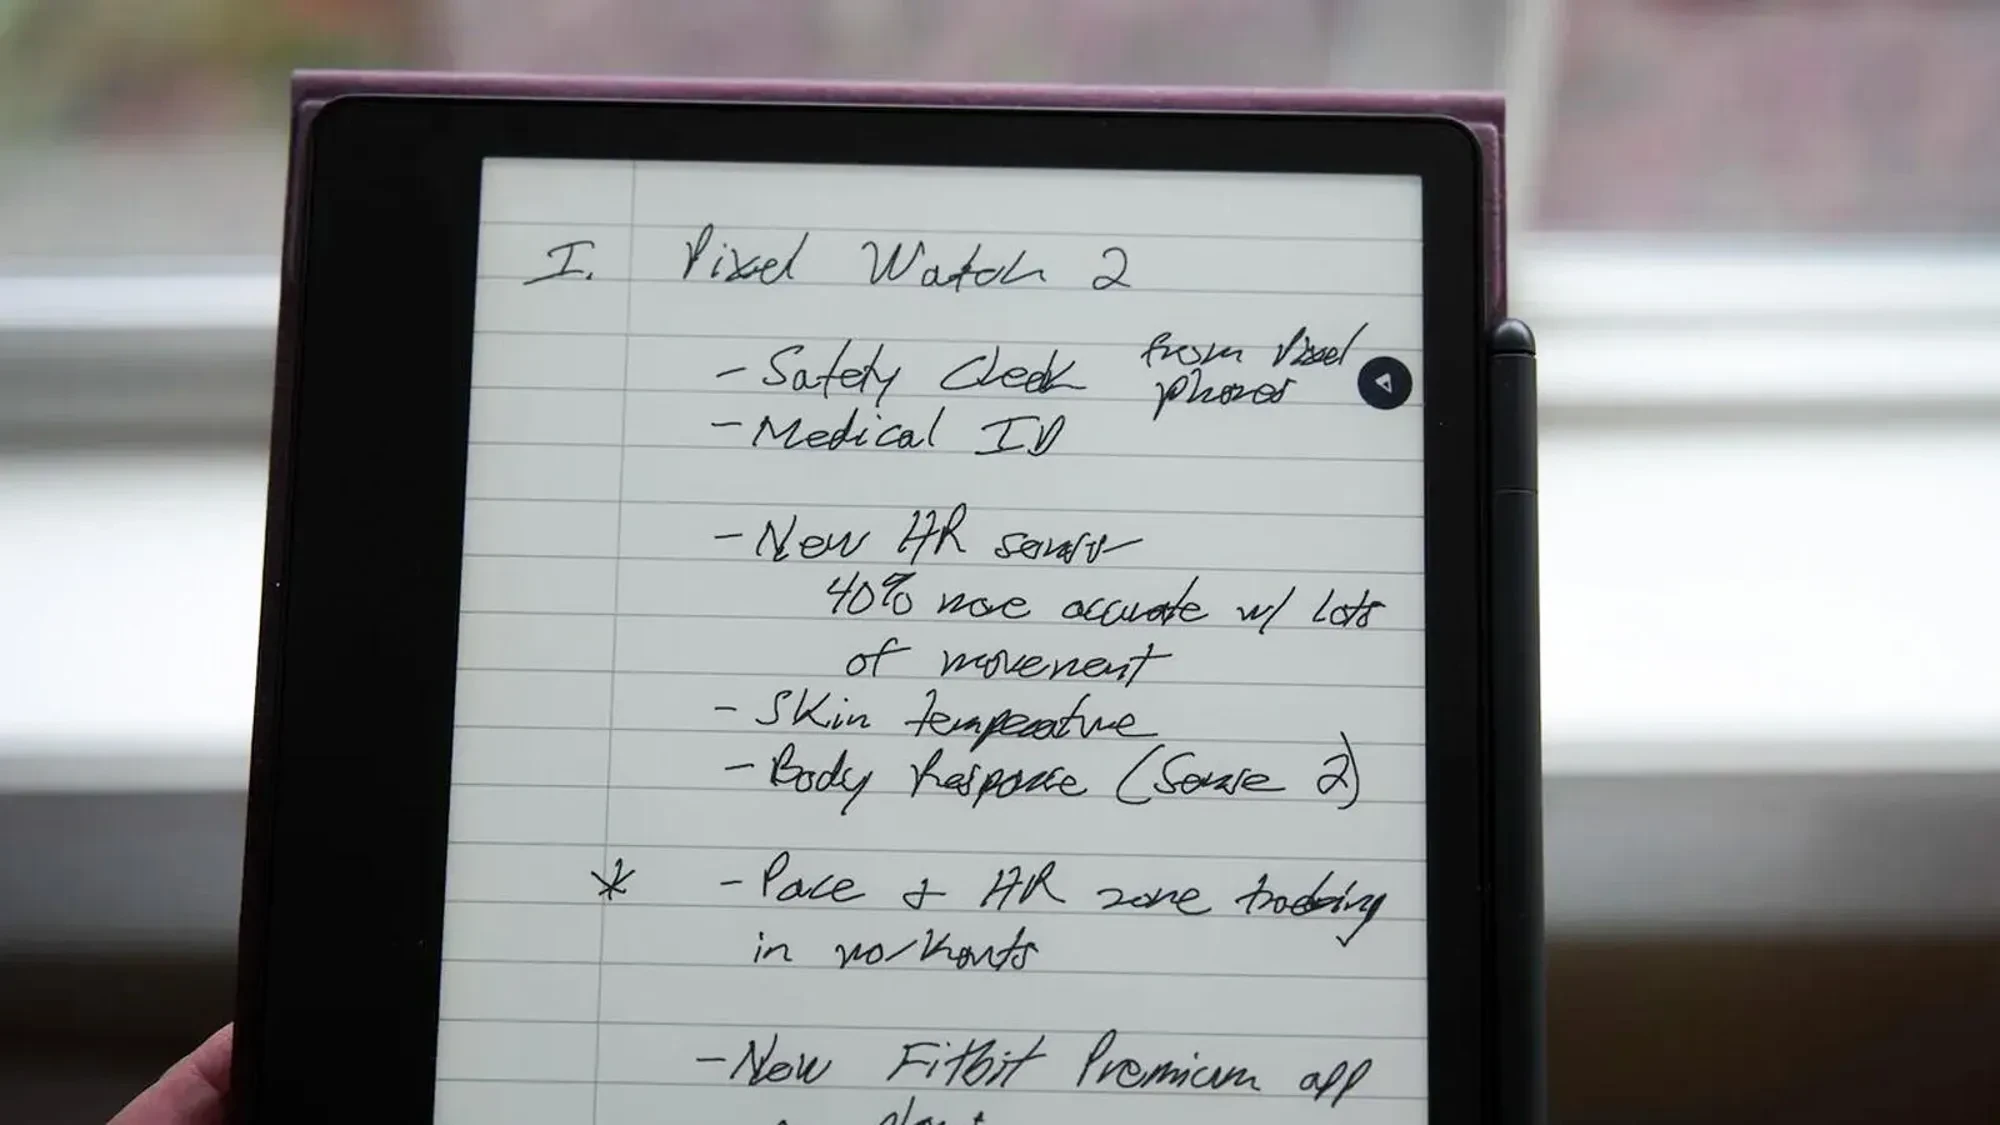 I. Pixel Watch 2
- Safety Check from Pixel
phones
- Medical ID
- New HR sensor
40% more accurate w/ lots
of movement
- Skin temperature
- Body Response (Sense 2)
* - Pace & HR zone tracking
in workouts
- New Fitbit Premium app